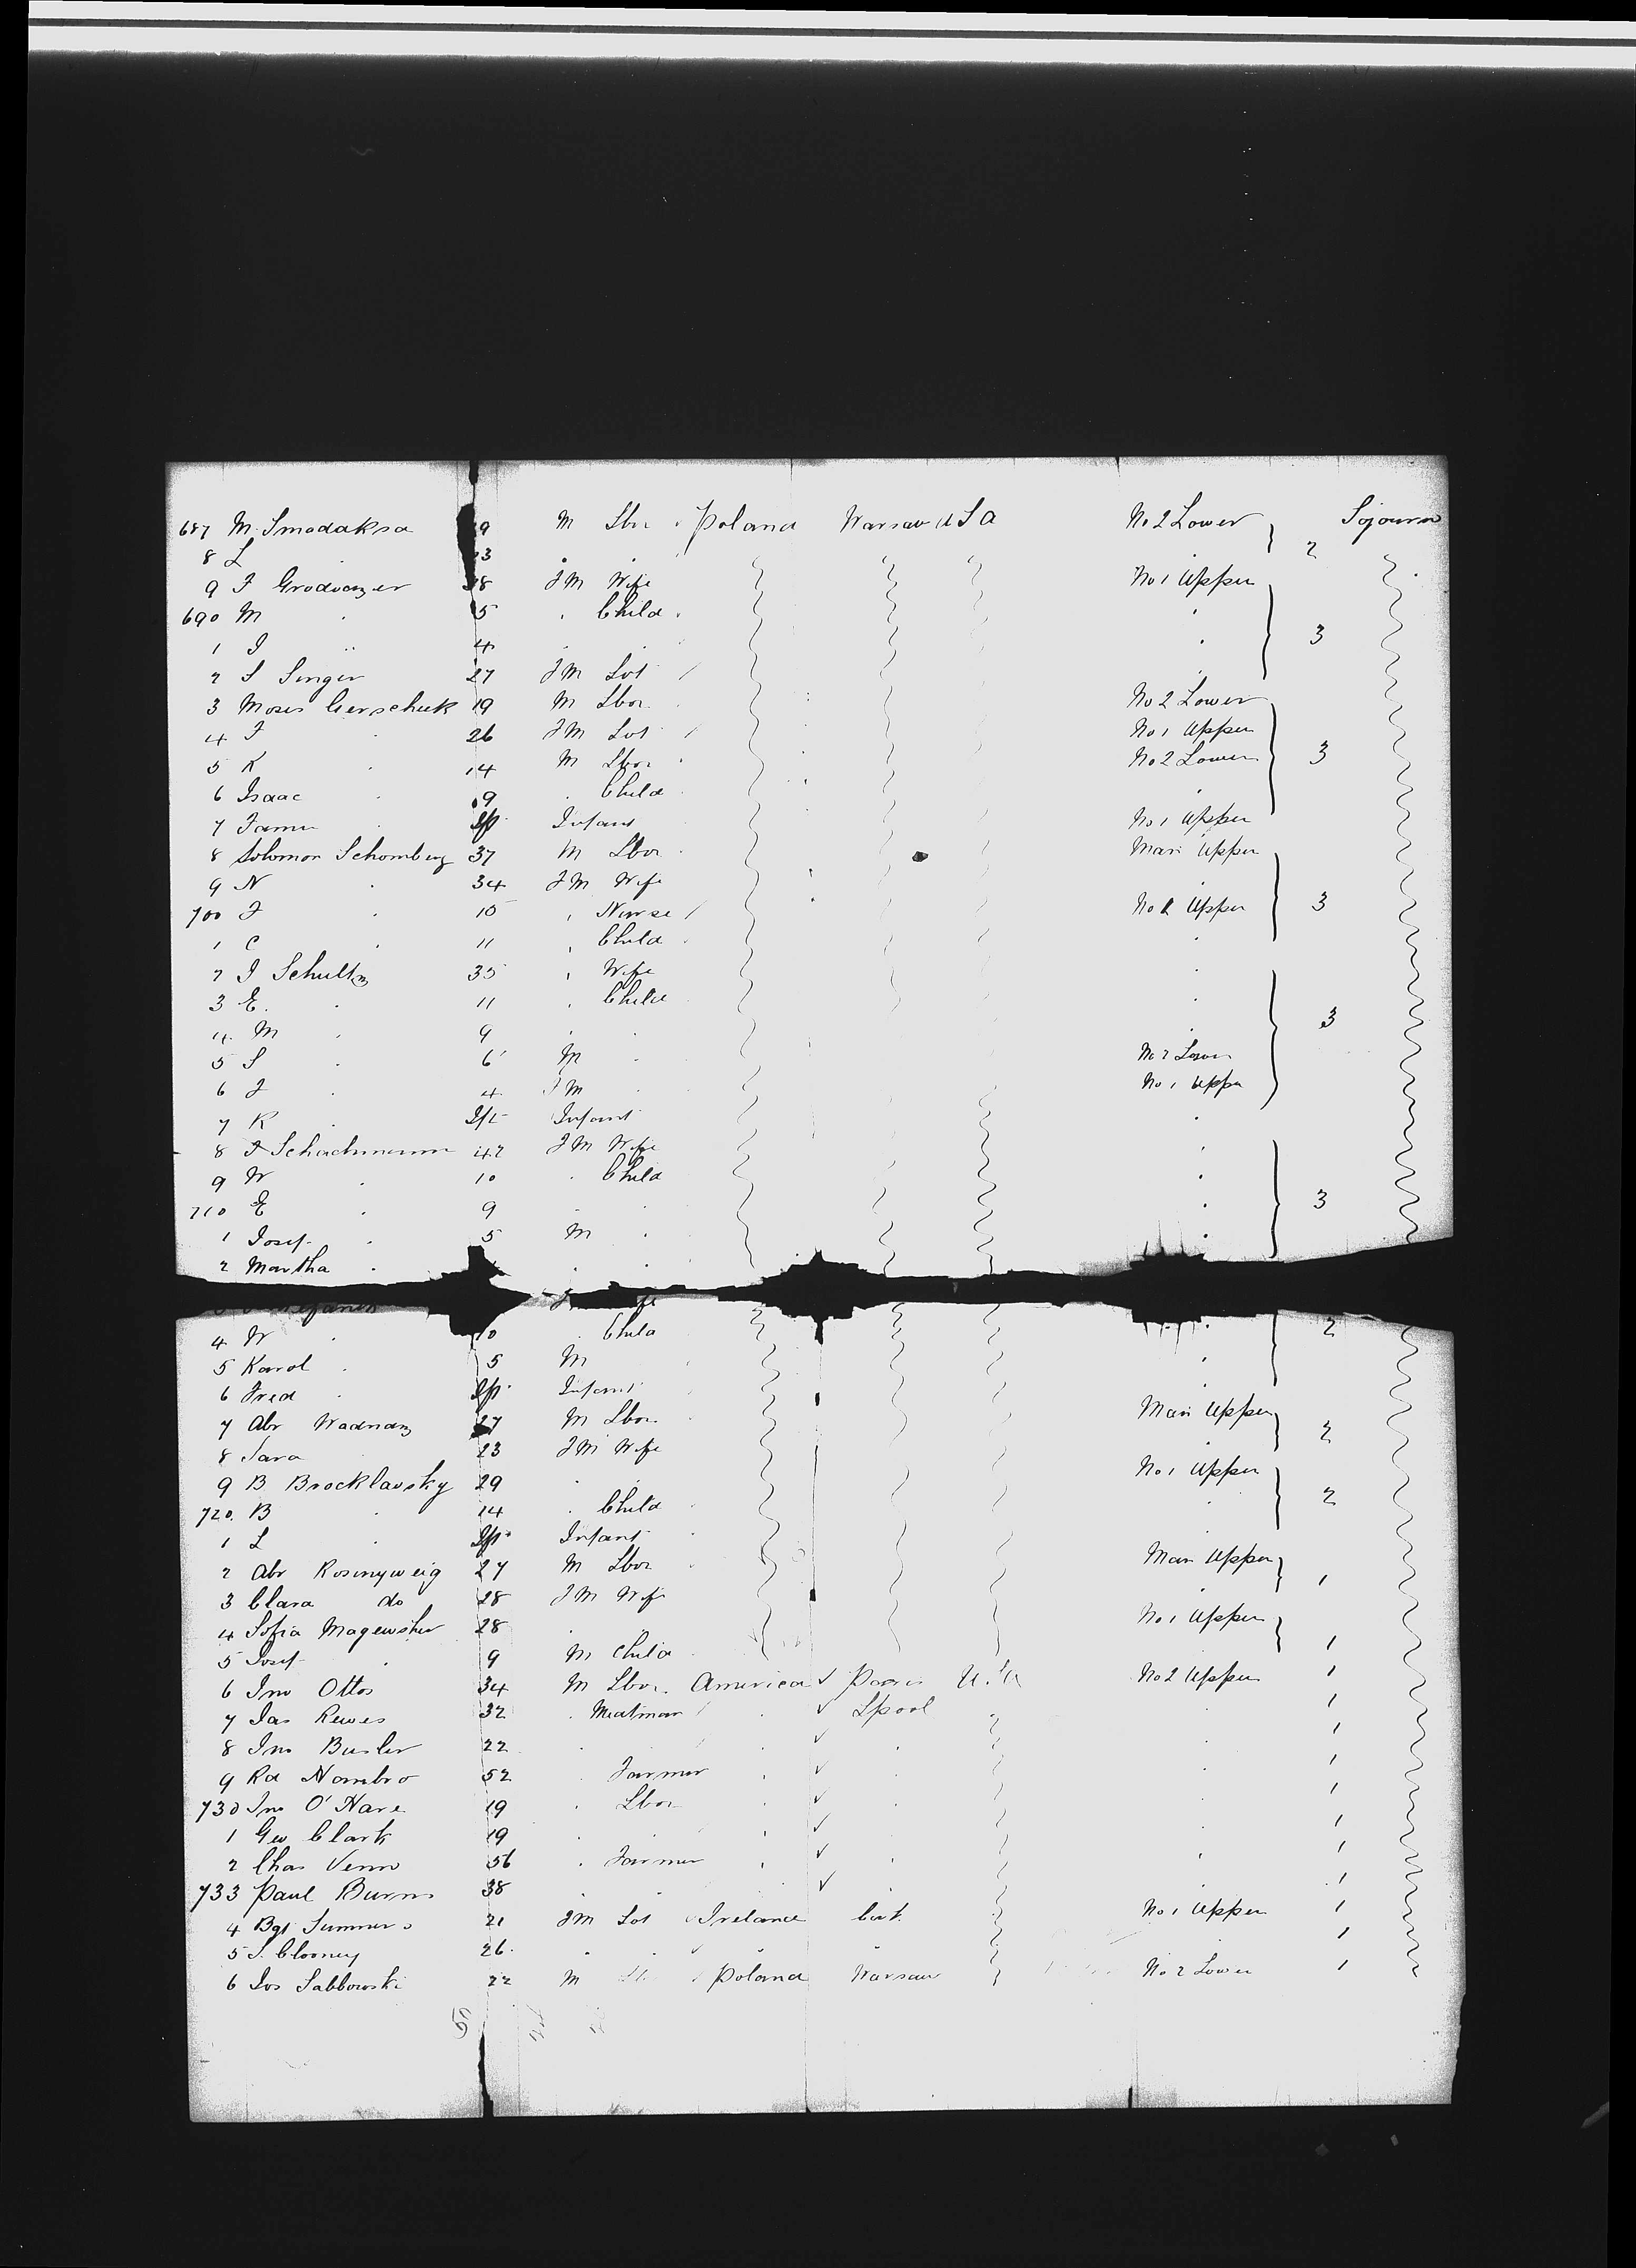 687 M. Smodaksa 9 M Lbr Poland Warsaw U S A No 2 Lower 2 Sojourn
8 L . 23 . .
9 F Grodvanzer 38 FM Wife No 1 Upper
690 M . 5 . Child .
1 I .. 4 . . . 3
2 S Singer 27 FM Lot .
3 Moses Gerscheck 19 M Lbor No 2 Lower
4 F . 26 FM Lot No 1 Upper
5 K . 14 M Lbor No 2 Lower 3
6 Isaac . 9 . Child .
7 Infant No 1 Upper
8 Solomon Schomberg 37 M Lbor Main Upper
9 N . 34 FM Wife .
700 F . 15 . Nurse No 1 Upper 3
1 C . 11 . Child .
2 I Schultz 35 . Wife .
3 E. . 11 . Child .
4 M . 9 . . 3
5 S . 6 M . No 2 Lower
6 F . 4 FM . No 1 Upper
7 K . Inft Infant .
8 F Schachmann 42 FM Wife .
9 W . 10 . Child .
710 E . 9 . . . 3
1 Josef . 5 M . .
2 Martha . . .
4 W . 10 . Child . 2
5 Karol . 5 M .
6 Fred . Inft Infant .
7 Abr 27 M Lbor Main Upper
8 Sara 23 FM Wife . 2
9 B Brocklavsky 29 . . No 1 Upper
720 B . 14 . Child . 2
1 L . Inft Infant
2 Abr Rosinzweig 27 M Lbor Main Upper
3 Clara do 28 FM Wife . 1
4 Sofia 28 . . No 1 Upper
5 Josef . 9 M Child 1
6 Jno Ottos 34 M Lbor. America Paris No 2 Upper 1
7 Jas Reeves 32 . Meatman . Lpool . 1
8 Jno Busler 22 . . . 1
9 Rd Hambro 52 . Farmer . . . 1
730 Jno O'Hare 19 . Lbor . . . 1
1 Geo Clark 19 . . . . 1
2 Chas Venn 56 . Farmer . . . 1
733 Paul Burns 38 . . . . 1
4 Bgt Summers 21 FM Lot Ireland Cork No 1 Upper 1
5 S. Clooney 26. . . . . 1
6 Jos Sabbowski 22 M Poland Warsaw No 2 Lower 1